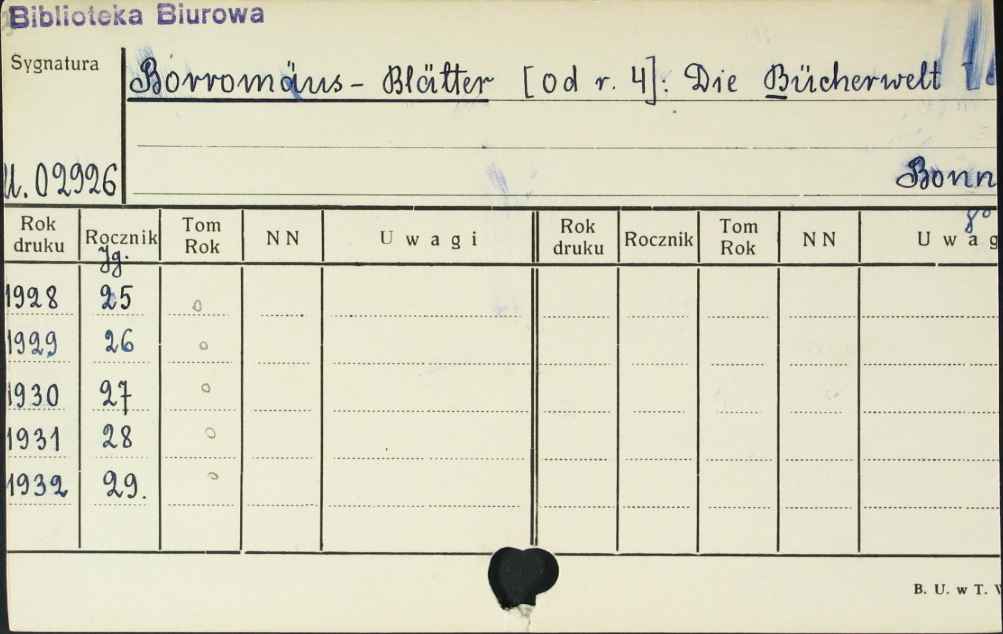 Biblioteka Biurowa
Sygnatura
Borromäus-Blätter [od r. 4]: Die Bücherwelt
U. 02926
Bonn
8°
Rok druku Rocznik Tom Rok NN Uwagi Rok druku Rocznik Tom Rok NN Uwag
Jg.
1928 25 o
1929 26 o
1930 27 o
1931 28 o
1932 29. o
B. U. w T.